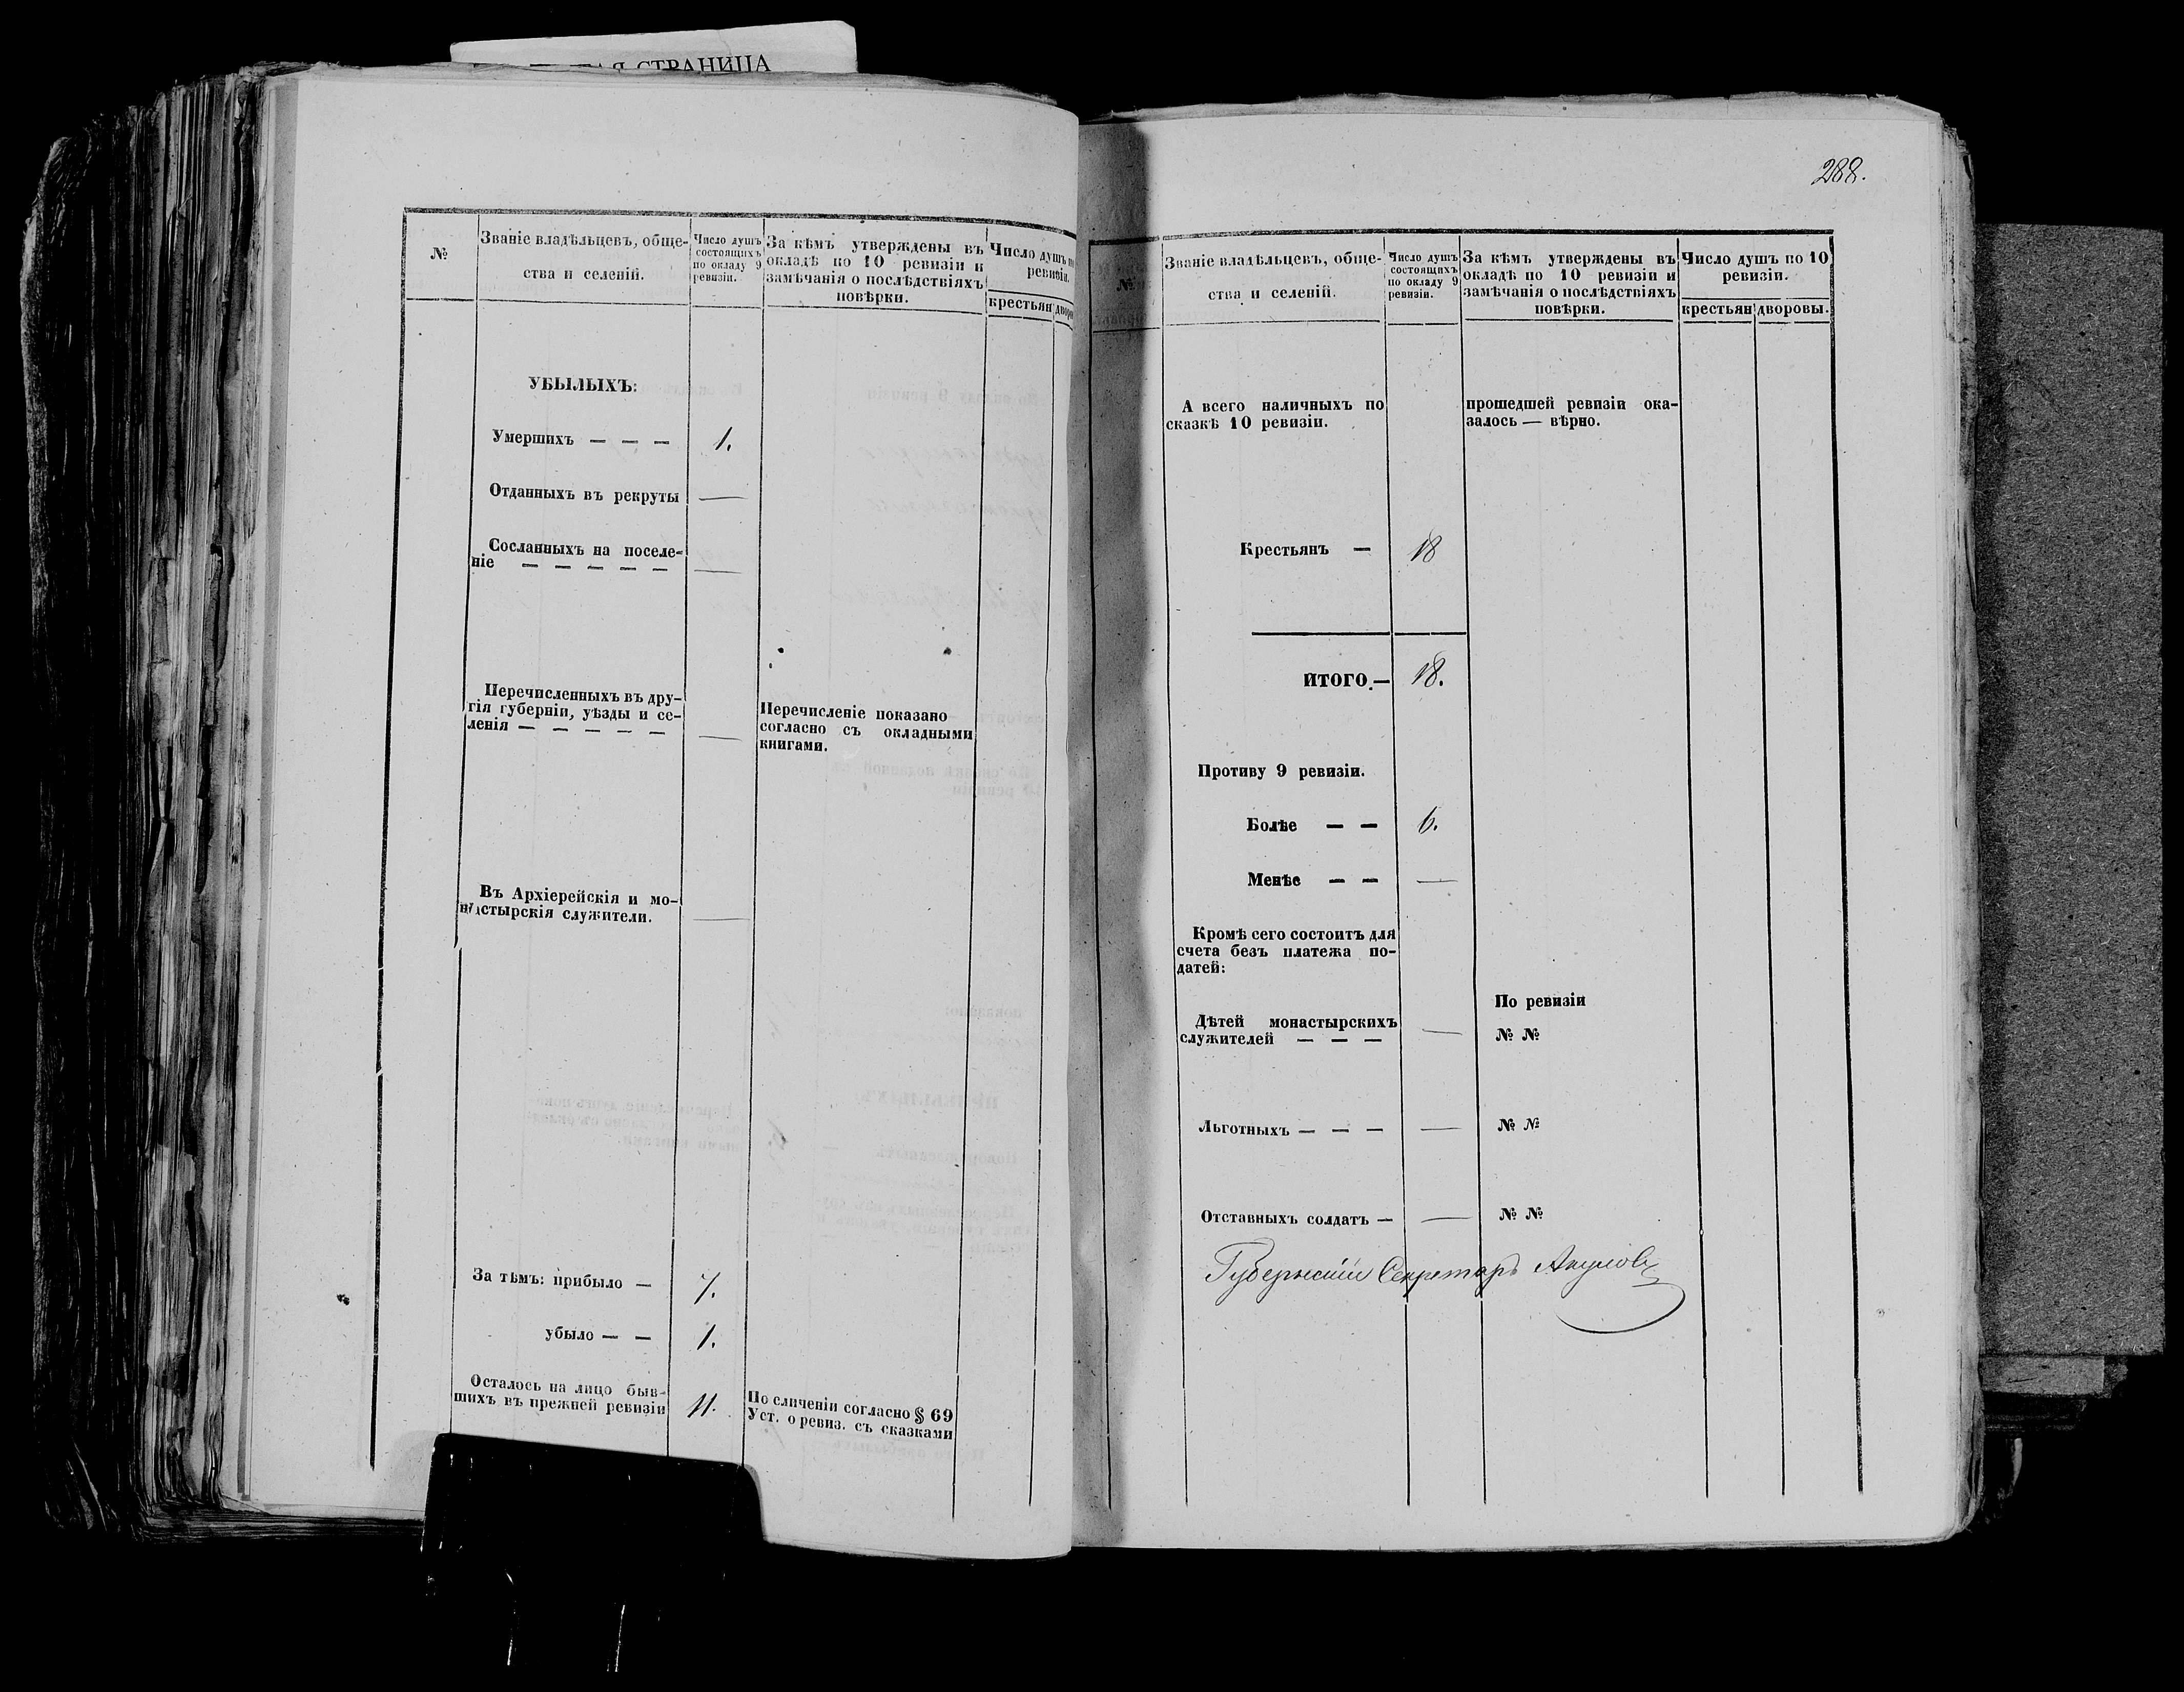 СТРАНИЦА
№
Званіе владѣльцевъ, обще-
ства и селеній.
Число душъ
состоящихъ
по окладу 9
ревизіи.
За кѣмъ утверждены въ
окладѣ по 10 ревизіи и
замѣчанія о послѣдствіяхъ
повѣрки.
Число душъ
ревизіи.
крестьян
УБЫЛЫХЪ:
Умершихъ — — — 1.
Отданныхъ въ рекруты —
Сосланныхъ на поселе-
ніе — — — — — —
Перечисленныхъ въ дру-
гія губерніи, уѣзды и се-
ленія — — — — — —
Перечисленіе показано
согласно съ окладными
книгами.
Въ Архіерейскія и мо-
настырскія служители. —
За тѣмъ: прибыло — 7.
убыло — — 1.
Осталось на лицо быв-
шихъ въ прежней ревизіи 11.
По сличеніи согласно § 69
Уст. о ревиз. съ сказками
288.
№
Званіе владѣльцевъ, обще-
ства и селеній.
Число душъ
состоящихъ
по окладу 9
ревизіи.
За кѣмъ утверждены въ
окладѣ по 10 ревизіи и
замѣчанія о послѣдствіяхъ
повѣрки.
Число душъ по 10
ревизіи.
крестьян
дворовы.
А всего наличныхъ по
сказкѣ 10 ревизіи.
прошедшей ревизіи ока-
залось — вѣрно.
Крестьянъ — 18
ИТОГО.— 18.
Противу 9 ревизіи.
Болѣе — — 6.
Менѣе — — —
Кромѣ сего состоитъ для
счета безъ платежа по-
датей:
По ревизіи
Дѣтей монастырскихъ
служителей — — — —
№ №
Льготныхъ — — — — № №
Отставныхъ солдатъ — — № №
Губернскій Секретарь Акуловъ